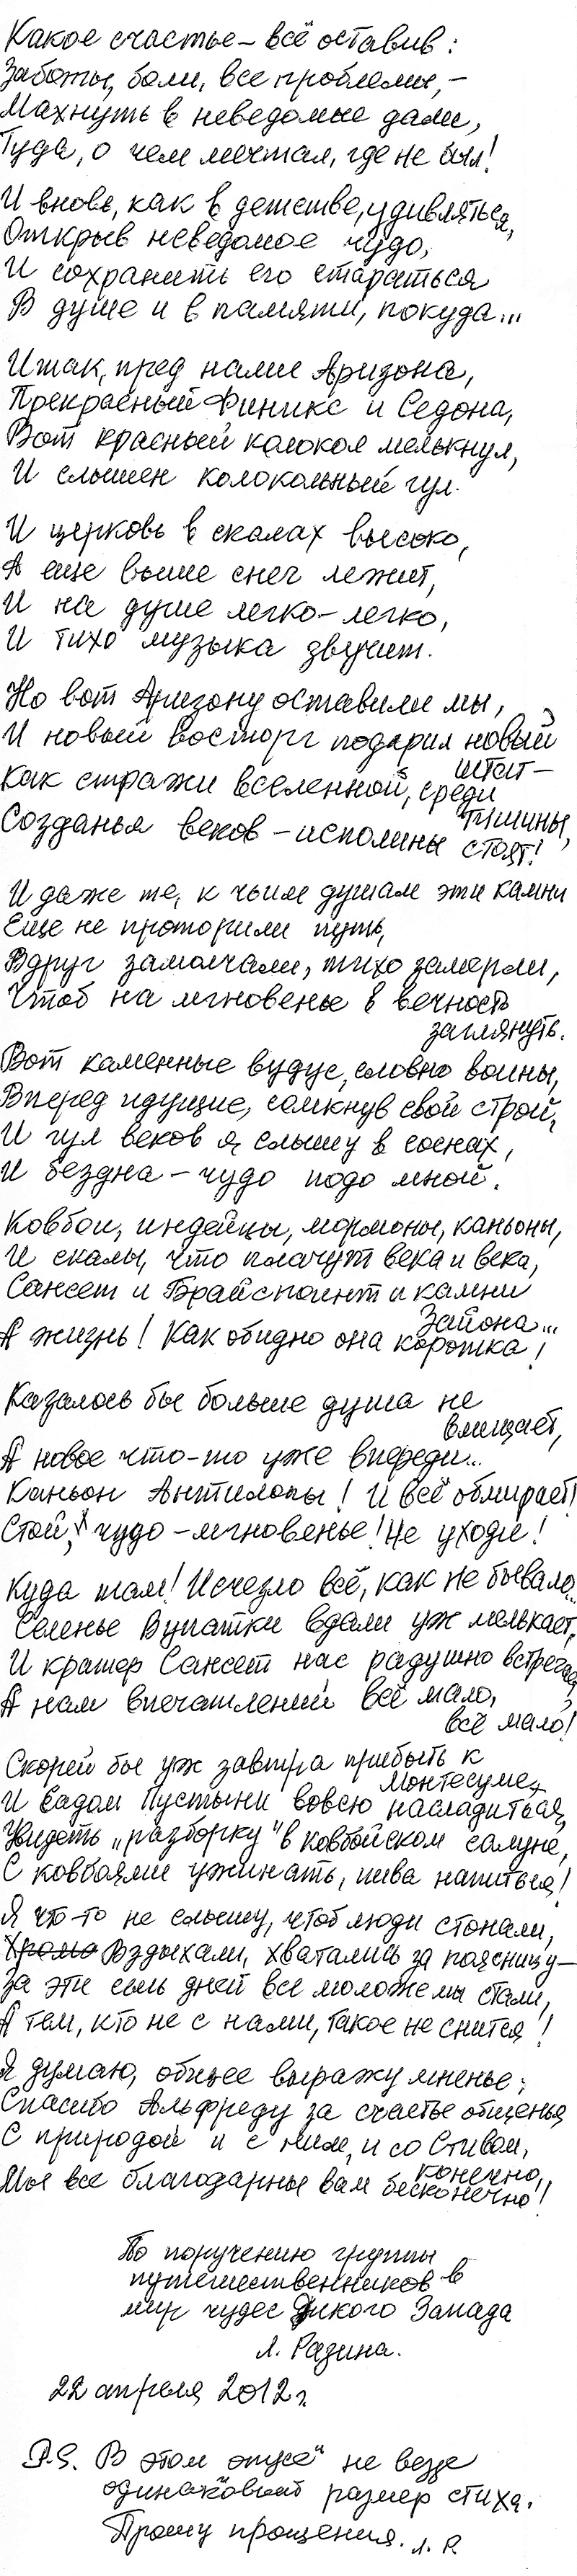 Какое счастье – всё оставив:
Заботы, боли, все проблемы, –
Махнуть в неведомые дали,
Туда, о чем мечтал, где не был!
И вновь, как в детстве, удивляться,
Открыв неведомое чудо,
И сохранить его стараться
В душе и в памяти, покуда...
Итак, пред нами Аризона,
Прекрасный Финикс и Седона,
Вот красный колокол мелькнул,
И слышен колокольный гул.
И церковь в скалах высоко,
А еще выше снег лежит,
И на душе легко-легко,
И тихо музыка звучит.
Но вот Аризону оставили мы,
И новый восторг подарил новый
штат –
Как стражи вселенной, среди
тишины,
Созданья веков – исполины стоят!
И даже те, к чьим душам эти камни
Еще не проторили путь,
Вдруг замолчали, тихо замерли,
Чтоб на мгновенье в вечность
заглянуть.
Вот каменные вудуе, словно воины,
Вперед идущие, сомкнув свой строй,
И гул веков я слышу в соснах,
И бездна – чудо подо мной.
Ковбои, индейцы, мормоны, каньоны,
И скалы, что плачут века и века,
Сансет и Брайспоинт и камни
Зайона...
А жизнь! Как обидно она коротка!
Казалось бы больше душа не
вмещает,
А новое что-то уже впереди...
Каньон Антилопы! И всё обмирает!
Стой, чудо-мгновенье! Не уходи!
Куда там! Исчезло всё, как не бывало...
Селенье Вупатки вдали уж мелькает,
И кратер Сансет нас радушно встречает,
А нам впечатлений всё мало,
всё мало!
Скорей бы уж завтра прибыть к
Монтесуме,
И Садом Пустыни вовсю насладиться,
Увидеть „разборку" в ковбойском салуне,
С ковбоями ужинать, пива напиться!
Я что-то не слышу, чтоб люди стонали,
Хромо Вздыхали, хватались за поясницу –
За эти семь дней все моложе мы стали,
А тем, кто не с нами, такое не снится!
Я думаю, общее выражу мненье:
Спасибо Альфреду за счастье общенья
С природой и с ним, и со Стивом,
конечно,
Мы все благодарны вам бесконечно!
По поручению группы
путешественников в
мир чудес Дикого Запада
Л. Разина.
22 апреля 2012 г.
P.S. В этом опусе не везде
одинаковый размер стиха.
Прошу прощения. Л. Р.